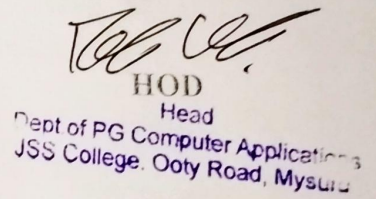 HOD
Head
Dept of PG Computer Applications
JSS College. Ooty Road, Mysuru